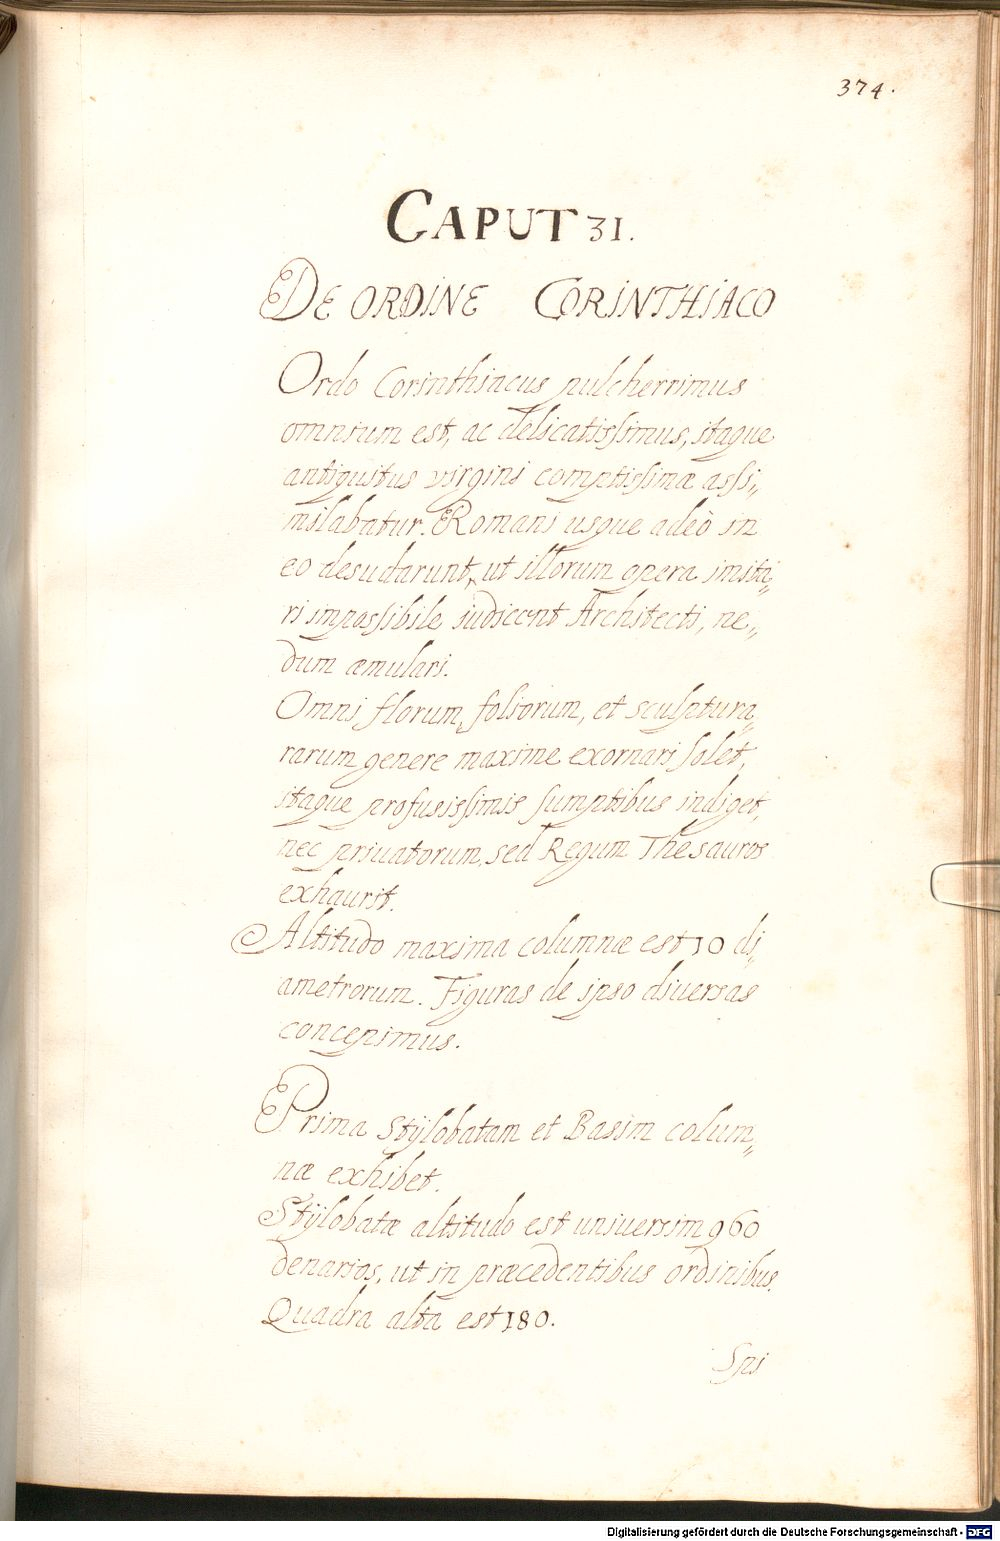 374.
CAPUT 31.
DE ORDINE CORINTHIACO
Ordo Corinthiacus pulcherrimus
omnium est, ac delicatissimus, itaque
antiquitus virgini comptissimæ assi„
milabatur. Romani usque adeò in
eo desudarunt, ut illorum opera imita„
ri impossibile iudicent Architecti, ne„
dum æmulari.
Omni florum, foliorum, et sculptura„
rarum genere maxime exornari solet,
itaque profusissimis sumptibus indiget,
nec priuatorum, sed Regum Thesauros
exhaurit.
Altitudo maxima columnæ est 10 di„
ametrorum. Figuras de ipso diuersas
concepimus.
Prima Stÿlobatam et Basim colum„
næ exhibet.
Stÿlobatæ altitudo est uniuersim 960
denarios, ut in præcedentibus ordinibus.
Quadra alta est 180.
Spi
Digitalisierung gefördert durch die Deutsche Forschungsgemeinschaft - DFG